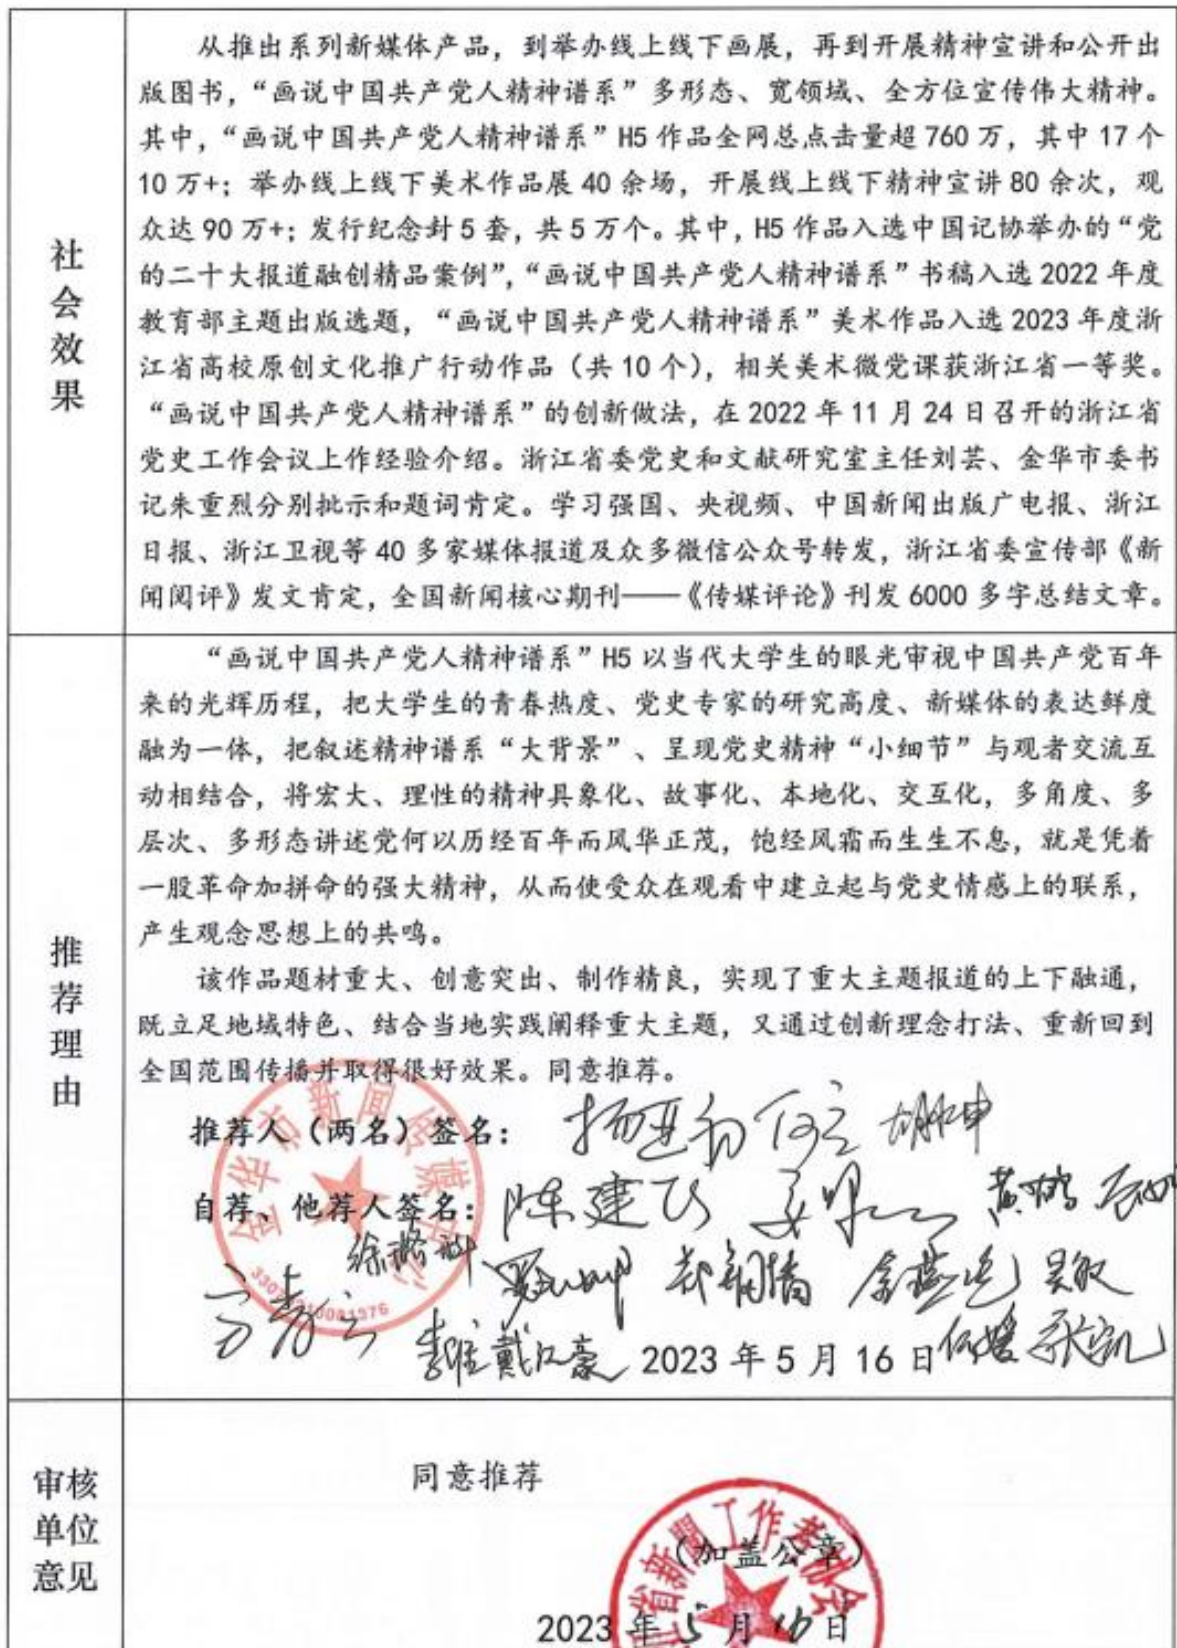 社会效果
从推出系列新媒体产品，到举办线上线下画展，再到开展精神宣讲和公开出
版图书，“画说中国共产党人精神谱系”多形态、宽领域、全方位宣传伟大精神。
其中，“画说中国共产党人精神谱系”H5 作品全网总点击量超 760 万，其中 17 个
10 万+；举办线上线下美术作品展 40 余场，开展线上线下精神宣讲 80 余次，观
众达 90 万+；发行纪念封 5 套，共 5 万个。其中，H5 作品入选中国记协举办的“党
的二十大报道融创精品案例”，“画说中国共产党人精神谱系”书稿入选 2022 年度
教育部主题出版选题，“画说中国共产党人精神谱系”美术作品入选 2023 年度浙
江省高校原创文化推广行动作品（共 10 个），相关美术微党课获浙江省一等奖。
“画说中国共产党人精神谱系”的创新做法，在 2022 年 11 月 24 日召开的浙江省
党史工作会议上作经验介绍。浙江省委党史和文献研究室主任刘芸、金华市委书
记朱重烈分别批示和题词肯定。学习强国、央视频、中国新闻出版广电报、浙江
日报、浙江卫视等 40 多家媒体报道及众多微信公众号转发，浙江省委宣传部《新
闻阅评》发文肯定，全国新闻核心期刊——《传媒评论》刊发 6000 多字总结文章。
推荐理由
“画说中国共产党人精神谱系”H5 以当代大学生的眼光审视中国共产党百年
来的光辉历程，把大学生的青春热度、党史专家的研究高度、新媒体的表达鲜度
融为一体，把叙述精神谱系“大背景”、呈现党史精神“小细节”与观者交流互
动相结合，将宏大、理性的精神具象化、故事化、本地化、交互化，多角度、多
层次、多形态讲述党何以历经百年而风华正茂，饱经风霜而生生不息，就是凭着
一股革命加拼命的强大精神，从而使受众在观看中建立起与党史情感上的联系，
产生观念思想上的共鸣。
该作品题材重大、创意突出、制作精良，实现了重大主题报道的上下融通，
既立足地域特色、结合当地实践阐释重大主题，又通过创新理念打法、重新回到
全国范围传播并取得很好效果。同意推荐。
金华市新闻传媒中心
推荐人（两名）签名：
自荐、他荐人签名：陈建飞
戴江豪 2023 年 5 月 16 日
审核单位意见
同意推荐
省新闻工作者协会
（加盖公章）
2023 年 5 月 16 日